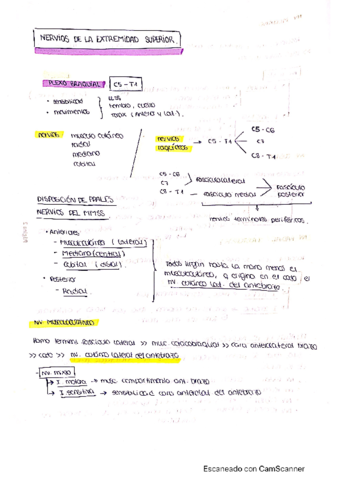 NERVIOS DE LA EXTREMIDAD SUPERIOR.
PLEXO BRAQUIAL C5 - T1
• sensibilidad
• movimientos
EESS
hombro, cuello
tórax (anterior y lat.)
nervios
musculo cutáneo
radial
mediano
cubital
nervios raquídeos → C5 - T1
C5 - C6
C7
C8 - T1
C5 - C6
C7
C8 - T1
Fascículo lateral
Fascículo medial
Fascículo posterior
nervios terminales periféricos.
DISPOSICIÓN DE PPALES
NERVIOS DEL MMSS
• Anteriores
- Musculocutáneo (lateral)
- Mediano (central)
- Cubital
• Posterior
- Radial
Todos llegan hasta la mano menos el
musculocutáneo, q origina en el codo, el
nv. cutáneo lat. del antebrazo
NV. MUSCULOCUTÁNEO
Rama terminal fascículo lateral >> musc. coracobraquial >> cara anterolateral brazo
>> codo >> nv. cutáneo lateral del antebrazo
- Nv. mixto
I. motora → musc. compartimento ant. brazo
I. sensitiva → sensibilidad cara anterolat. del antebrazo
Escaneado con CamScanner